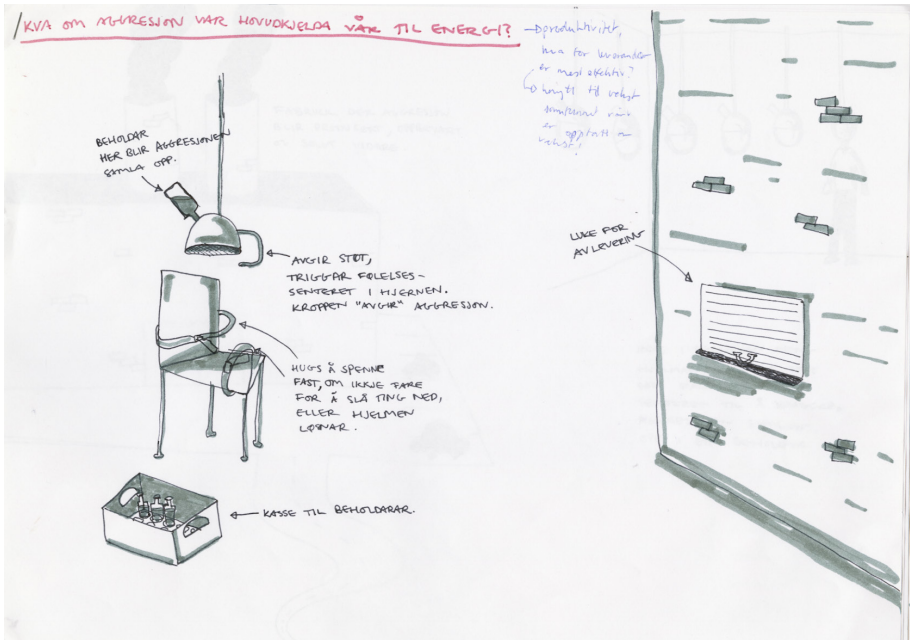 KVA OM AGGRESJON VAR HOVUDKJELDA VÅR TIL ENERGI?
produktivitet,
kva for leverandør
er mest effektiv?
knytt til vekst
er opptatt av
vekst!
BEHOLDAR
HER BLIR AGGRESJONEN
SAMLA OPP.
AVGIR STØT,
TRIGGAR FØLELSES-
SENTERET I HJERNEN.
KROPPEN "AVGIR" AGGRESJON.
HUGS Å SPENNE
FAST, OM IKKJE FARE
FOR Å SLÅ TING NED,
ELLER HJELMEN
LØSNAR.
KASSE TIL BEHOLDARAR.
LUKE FOR
AVLEVERING